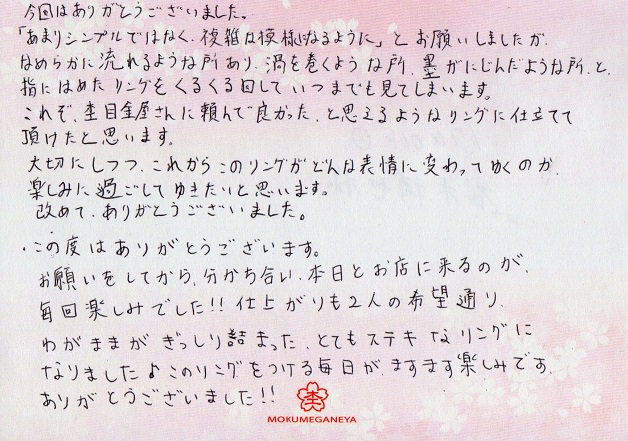 今回はありがとうございました。
「あまりシンプルではなく、複雑な模様になるように」とお願いしましたが、
なめらかに流れるような所あり、渦を巻くような所、墨がにじんだような所、と、
指にはめたリングをくるくる回していつまでも見てしまいます。
これぞ、杢目金屋さんに頼んで良かった、と思えるようなリングに仕立てて
頂けたと思います。
大切にしつつ、これからこのリングがどんな表情に変わってゆくのか、
楽しみに過ごしてゆきたいと思います。
改めて、ありがとうございました。
この度はありがとうございます。
お願いをしてから、分かち合い、本日とお店に来るのが、
毎回楽しみでした!!仕上がりも2人の希望通り、
わがままがぎっしり詰まった、とてもステキなリングに
なりました♪このリングをつける毎日が、ますます楽しみです。
ありがとうございました!!
杢
MOKUMEGANEYA